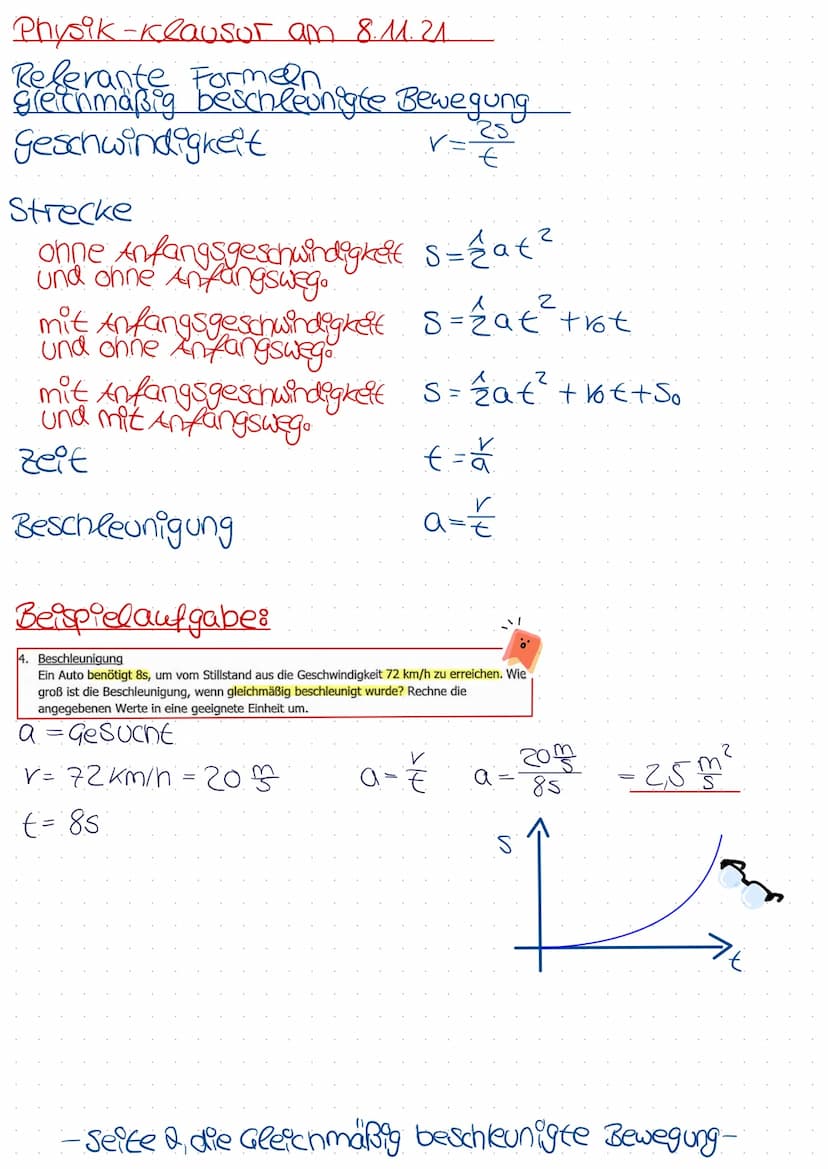 Physik-Klausur am 8.11.21
Relevante Formeln
gleichmäßig beschleunigte Bewegung
Geschwindigkeit v = 2s/t
Strecke
ohne Anfangsgeschwindigkeit
und ohne Anfangsweg. s = 1/2 a t²
mit Anfangsgeschwindigkeit
und ohne Anfangsweg. s = 1/2 a t² + v₀t
mit Anfangsgeschwindigkeit
und mit Anfangsweg. s = 1/2 a t² + v₀t + s₀
Zeit t = v/a
Beschleunigung a = v/t
Beispielaufgabe:
4. Beschleunigung
Ein Auto benötigt 8s, um vom Stillstand aus die Geschwindigkeit 72 km/h zu erreichen. Wie
groß ist die Beschleunigung, wenn gleichmäßig beschleunigt wurde? Rechne die
angegebenen Werte in eine geeignete Einheit um.
a = Gesucht
v = 72 km/h = 20 m/s a = v/t a = 20 m/s / 8s = 2,5 m²/s
t = 8s
s
t
- Seite 2, die Gleichmäßig beschleunigte Bewegung -